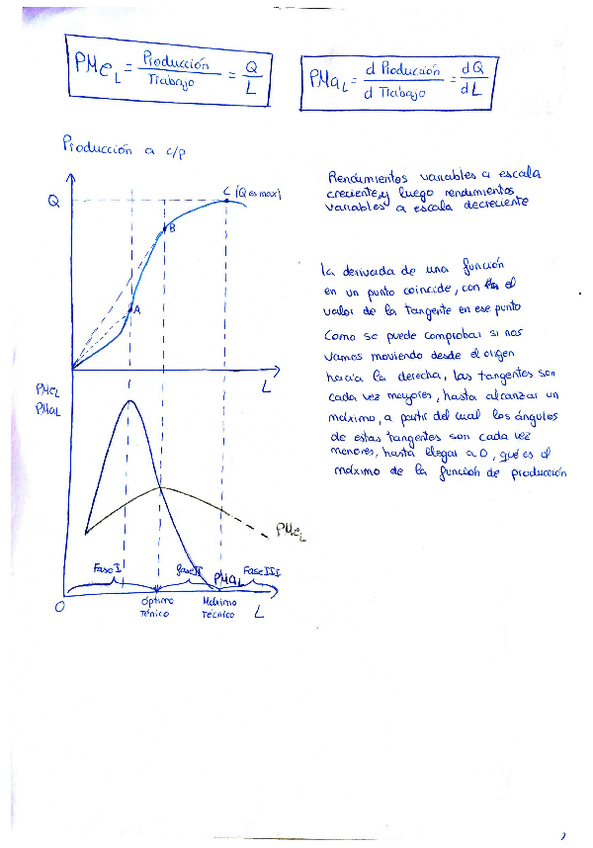 PMeL = Producción / Trabajo = Q / L
PMaL = d Producción / d Trabajo = dQ / dL
Producción a c/p
Rendimientos variables a escala
creciente, y luego rendimientos
variables a escala decreciente
Q
C (Q es max)
B
A
L
la derivada de una función
en un punto coincide, con el
valor de la tangente en ese punto
Como se puede comprobar si nos
vamos moviendo desde el origen
hacia la derecha, las tangentes son
cada vez mayores, hasta alcanzar un
máximo, a partir del cual los ángulos
de estas tangentes son cada vez
menores, hasta llegar a 0, que es el
máximo de la función de producción
PMeL
PMaL
PMeL
Fase I
fase II
PMaL
Fase III
O
Óptimo
Ténico
Máximo
Técnico
L